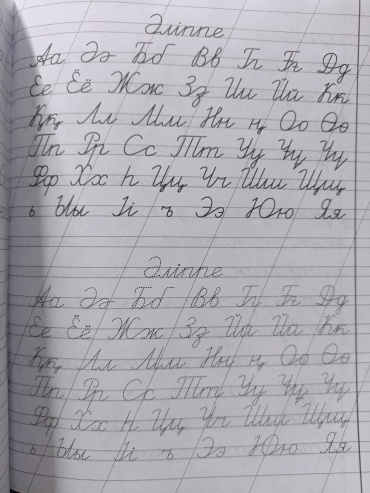 Әліппе
Аа Әә Бб Вв Гг Ғғ Дд
Ее Ёё Жж Зз Ии Йй Кк
Ққ Лл Мм Нн ң Оо Өө
Пп Рр Сс Тт Уу Ұұ Үү
Фф Хх һ Цц Чч Шш Щщ
ь Ыы Іі ъ Ээ Юю Яя
Әліппе
Аа Әә Бб Вв Гг Ғғ Дд
Ее Ёё Жж Зз Йй Йй Кк
Ққ Лл Мм Нн ң Оо Өө
Пп Рр Сс Тт Уу Ұұ Үү
Фф Хх һ Цц Чч Шш Щщ
ь Ыы Іі ъ Ээ Юю Яя